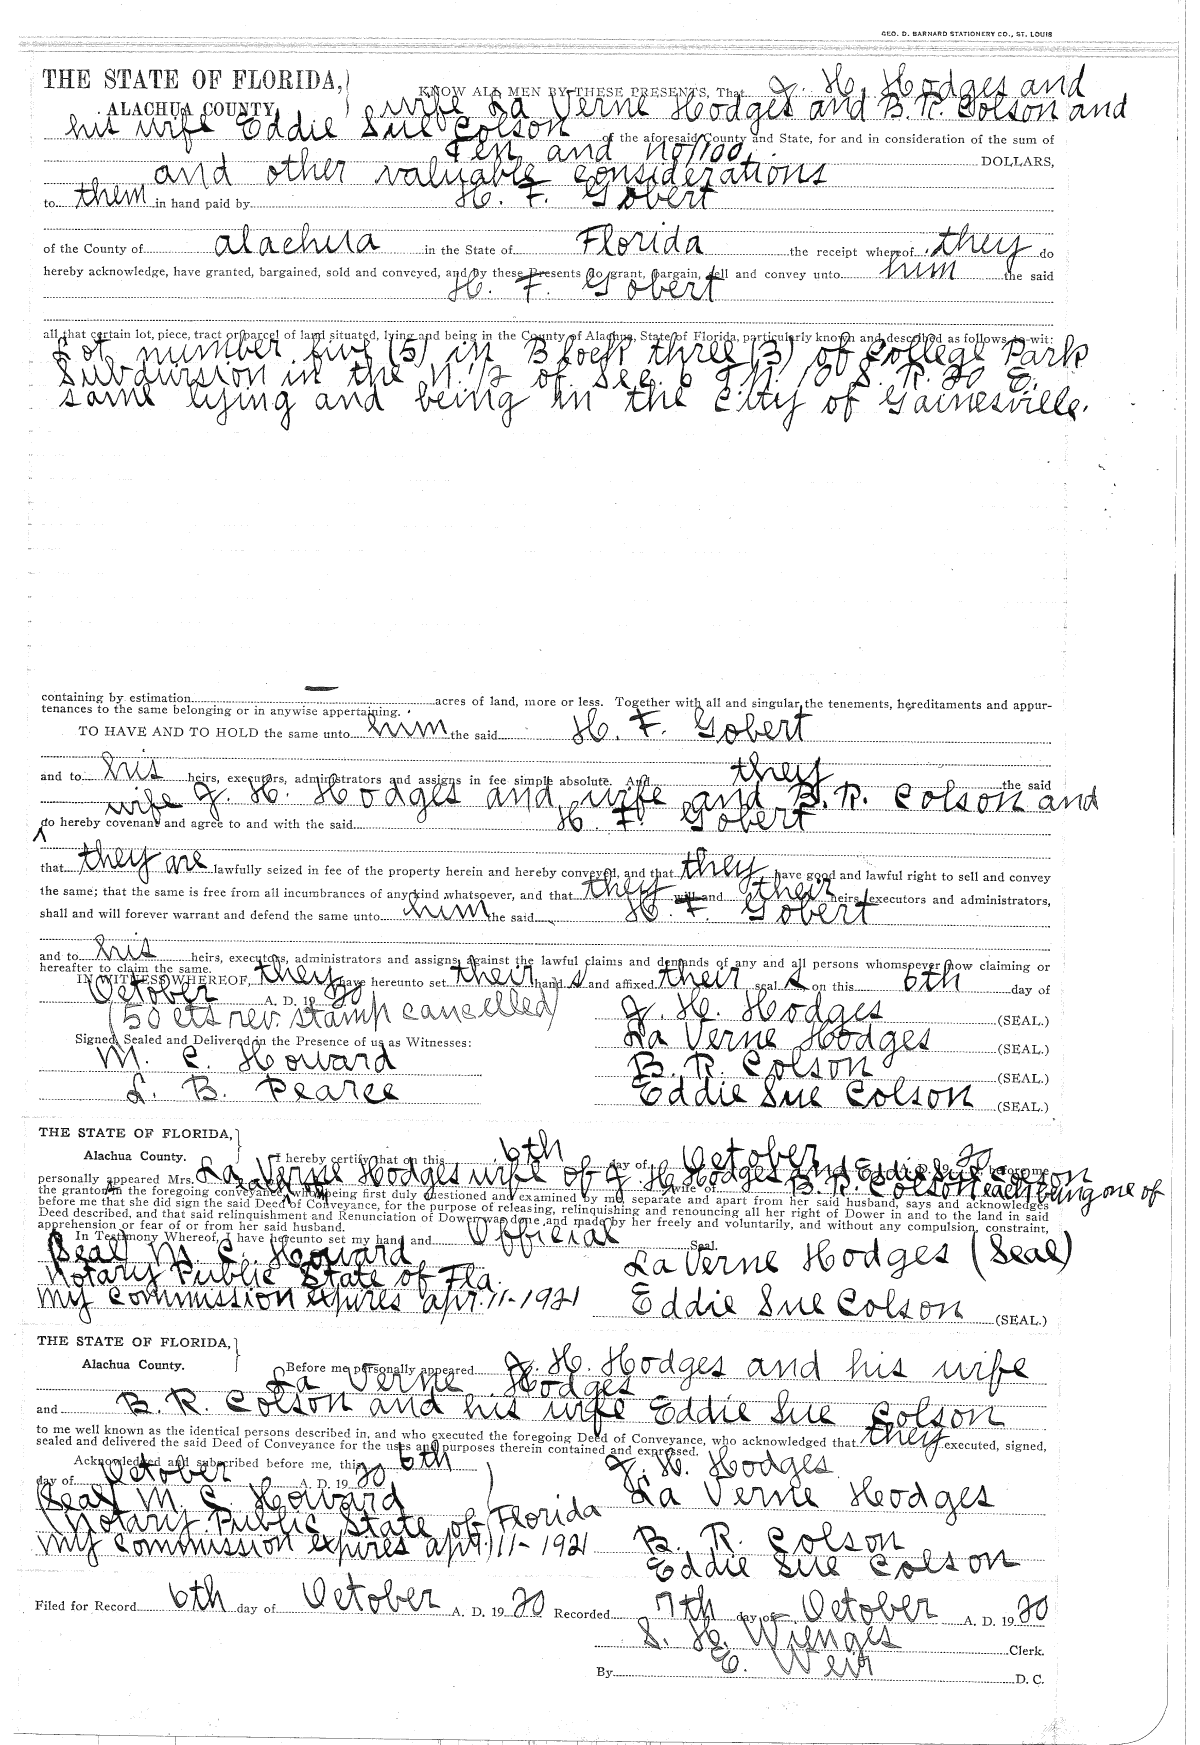 GEO. D. BARNARD STATIONERY CO., ST. LOUIS
THE STATE OF FLORIDA,) KNOW ALL MEN BY THESE PRESENTS, That J. H. Hodges and
ALACHUA COUNTY, wife La Verne Hodges and B. R. Colson and
his wife Eddie Sue Colson of the aforesaid County and State, for and in consideration of the sum of
Ten and no/100, DOLLARS,
and other valuable considerations
to them in hand paid by H. F. Gobert
of the County of Alachua in the State of Florida the receipt whereof they do
hereby acknowledge, have granted, bargained, sold and conveyed, and by these Presents do grant, bargain, sell and convey unto him the said
H. F. Gobert
all that certain lot, piece, tract or parcel of land situated, lying and being in the County of Alachua, State of Florida, particularly known and described as follows, to-wit:
Lot number five (5) in Block three (3) of College Park
Subdivision in the N. 1/2 of Sec. 6 T.N. 10 S. R. 20 E.
same lying and being in the City of Gainesville.
containing by estimation — acres of land, more or less. Together with all and singular the tenements, hereditaments and appur-
tenances to the same belonging or in anywise appertaining.
TO HAVE AND TO HOLD the same unto him the said H. F. Gobert
and to his heirs, executors, administrators and assigns in fee simple absolute. And they the said
wife J. H. Hodges and wife and B. R. Colson and
do hereby covenant and agree to and with the said H. F. Gobert
that they are lawfully seized in fee of the property herein and hereby conveyed, and that they have good and lawful right to sell and convey
the same; that the same is free from all incumbrances of any kind whatsoever, and that they will and their heirs, executors and administrators,
shall and will forever warrant and defend the same unto him the said H. F. Gobert
and to his heirs, executors, administrators and assigns, against the lawful claims and demands of any and all persons whomsoever now claiming or
hereafter to claim the same.
IN WITNESS WHEREOF, they have hereunto set their hand s and affixed their seal s on this 6th day of
October A. D. 19 20
(50 cts rev. stamp cancelled) J. H. Hodges (SEAL.)
Signed, Sealed and Delivered in the Presence of us as Witnesses: La Verne Hodges (SEAL.)
M. C. Howard B. R. Colson (SEAL.)
L. B. Pearce Eddie Sue Colson (SEAL.)
THE STATE OF FLORIDA,}
Alachua County. I hereby certify that on this 6th day of October 20 before me
personally appeared Mrs. La Verne Hodges wife of J. H. Hodges and Eddie Sue Colson
wife of B. R. Colson each being one of
the grantors in the foregoing conveyance, who being first duly questioned and examined by me separate and apart from her said husband, says and acknowledges
before me that she did sign the said Deed of Conveyance, for the purpose of releasing, relinquishing and renouncing all her right of Dower in and to the land in said
Deed described, and that said relinquishment and Renunciation of Dower was done and made by her freely and voluntarily, and without any compulsion, constraint,
apprehension or fear of or from her said husband.
In Testimony Whereof, I have hereunto set my hand and Official Seal.
(Seal) M. C. Howard La Verne Hodges (Seal)
Notary Public State of Fla.
My commission expires Apr. 11-1921 Eddie Sue Colson (SEAL.)
THE STATE OF FLORIDA,}
Alachua County. Before me personally appeared J. H. Hodges and his wife
La Verne Hodges
and B. R. Colson and his wife Eddie Sue Colson
to me well known as the identical persons described in, and who executed the foregoing Deed of Conveyance, who acknowledged that they executed, signed,
sealed and delivered the said Deed of Conveyance for the uses and purposes therein contained and expressed.
Acknowledged and subscribed before me, this 6th J. H. Hodges
day of October A. D. 19 20
(Seal) M. C. Howard La Verne Hodges
Notary Public State of Florida
My commission expires Apr. 11-1921 B. R. Colson
Eddie Sue Colson
Filed for Record 6th day of October A. D. 19 20 Recorded 7th day of October A. D. 19 20
S. H. Wienges Clerk.
By E. Weir D. C.